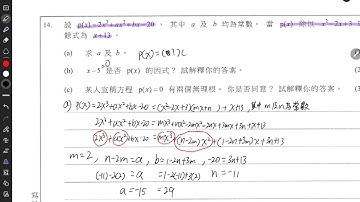 14. 設 p(x)=2x³+ax²+bx-20 , 其中 a 及 b 均為常數。 當 p(x) 除以 x²-2x+3
餘式為 x+13。
(a) 求 a 及 b。 p(x)=( )(
(b) x-5 是否 p(x) 的因式? 試解釋你的答案。
(c) 某人宣稱方程 p(x)=0 有兩個無理根。你是否同意? 試解釋你的答案。
a) p(x)=2x³+ax²+bx-20=(x²-2x+3)(mx+n)+x+13, 其中 m及n為常數
2x³+ax²+bx-20=mx³+nx²-2mx²-2nx+3mx+3n+x+13
2x³+ax²+bx-20=mx³+(n-2m)x²+(1-2n+3m)x+3n+13
m=2, n-2m=a, b=1-2n+3m, -20=3n+13
(-11)-2(2)=a =1-2(-11)+3(2) n=-11
a=-15 =29
寫